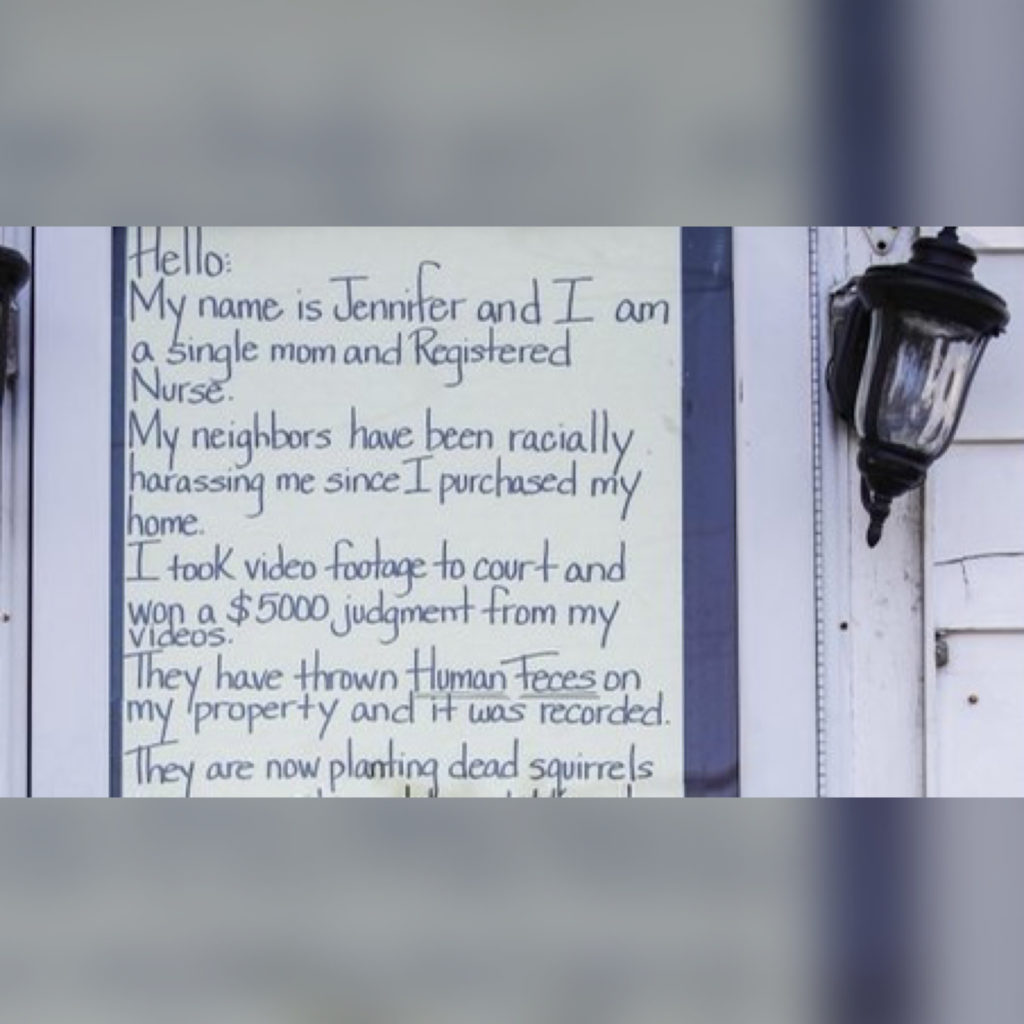 Hello:
My name is Jennifer and I am
a single mom and Registered
Nurse.
My neighbors have been racially
harassing me since I purchased my
home.
I took video footage to court and
won a $5000 judgment from my
videos.
They have thrown Human Feces on
my property and it was recorded.
They are now planting dead squirrels